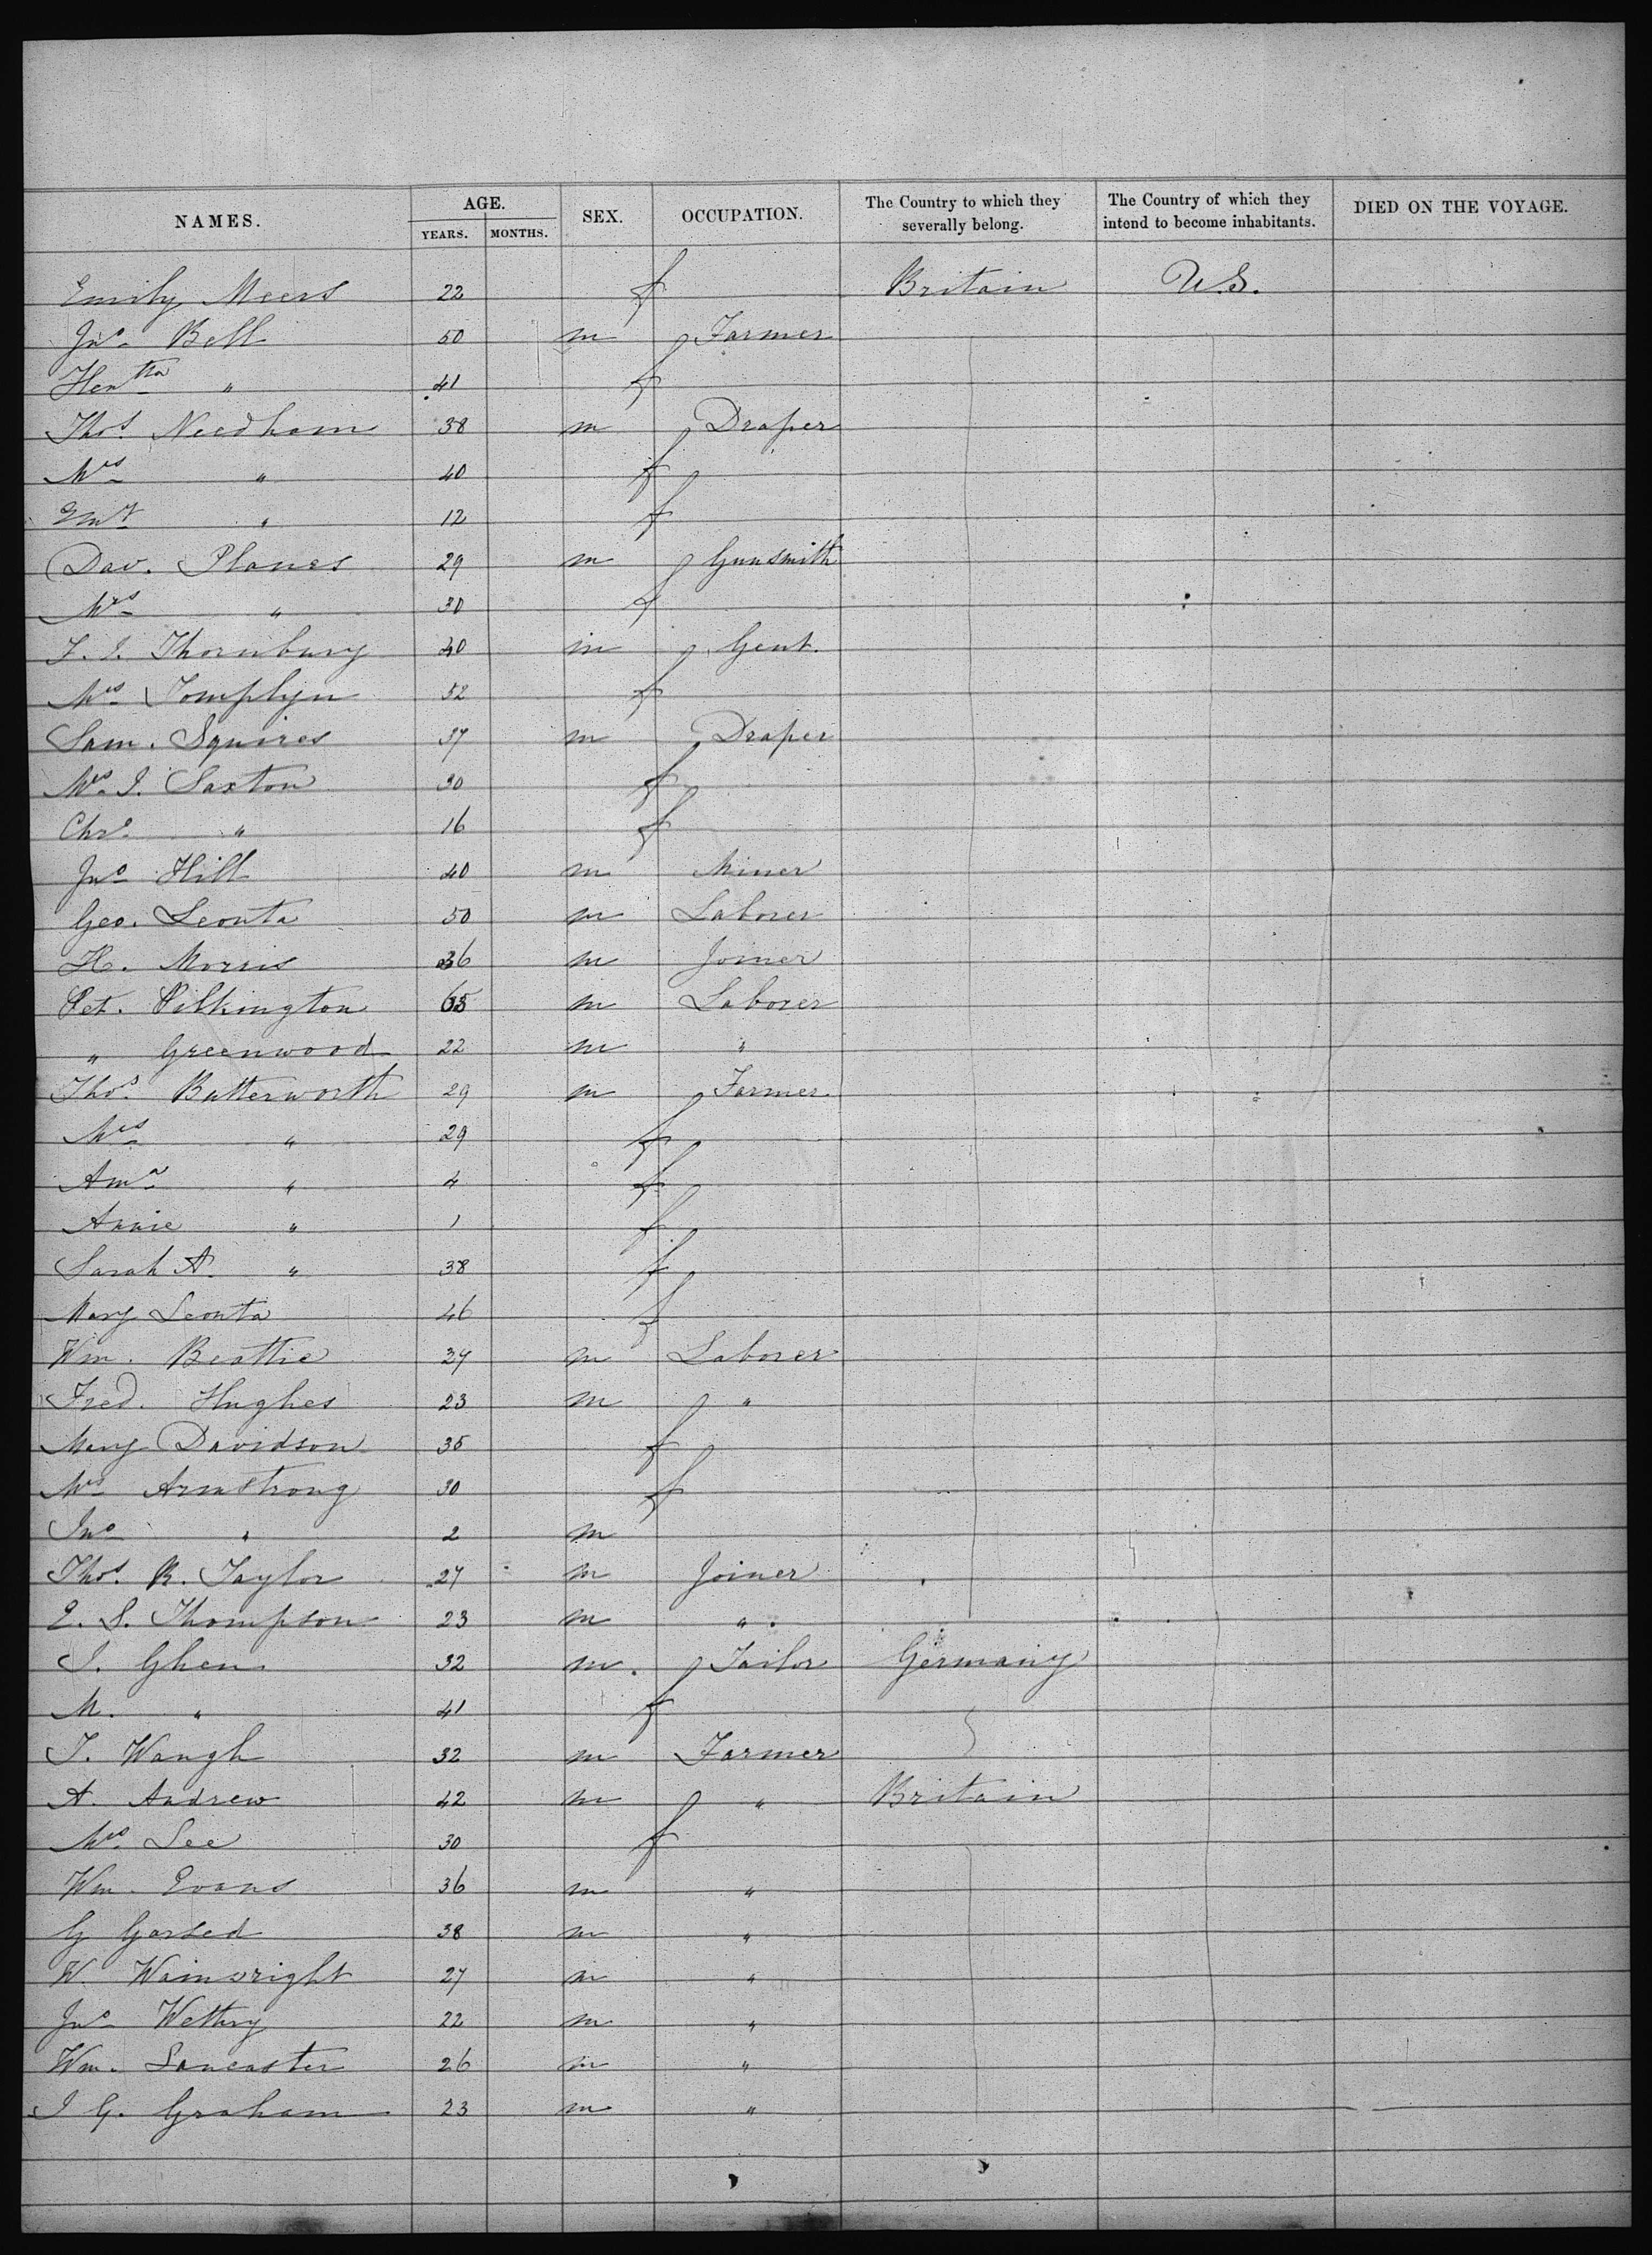 NAMES. AGE. SEX. OCCUPATION. The Country to which they severally belong. The Country of which they intend to become inhabitants. DIED ON THE VOYAGE.
YEARS. MONTHS.
Emily Meers 22 f Britain U.S.
Jno. Bell 50 m Farmer
Hentta " 41 f
Thos. Needham 38 m Draper
Mrs " 40 f
" 12 f
Dav. Planes 29 m Gunsmith
Mrs " 30 f
Thornbury 40 m Gent.
Mrs Tomplyn 52 f
Sam. Squires 37 m Draper
Mrs J. Saxton 30 f
Chrs. " 16 f
Jno Hill 40 m Miner
Geo. Leonta 50 m Laborer
H. Morris 36 m Joiner
Pet. Pilkington 65 m Laborer
" Greenwood 22 m "
Thos. Butterworth 29 m Farmer
Mrs " 29 f
Ama " 4 f
Annie " 1 f
Sarah A. " 38 f
Mary Leonta 46 f
Wm. Beattie 27 m Laborer
Fred. Hughes 23 m "
Mary Davidson 35 f
Mrs Armstrong 30 f
Jno " 2 m
Thos. R. Taylor 27 m Joiner
E. S. Thompson 23 m "
J. Ghen 32 m. Tailor Germany
M. " 41 f
T. Waugh 32 m Farmer
A. Andrew 42 m " Britain
Mrs Lee 30 f
Wm. Evans 36 m "
G Garsed 38 m "
W. Wainwright 27 m "
Jno Wethry 22 m "
Wm. Lancaster 26 m "
J G. Graham 23 m "